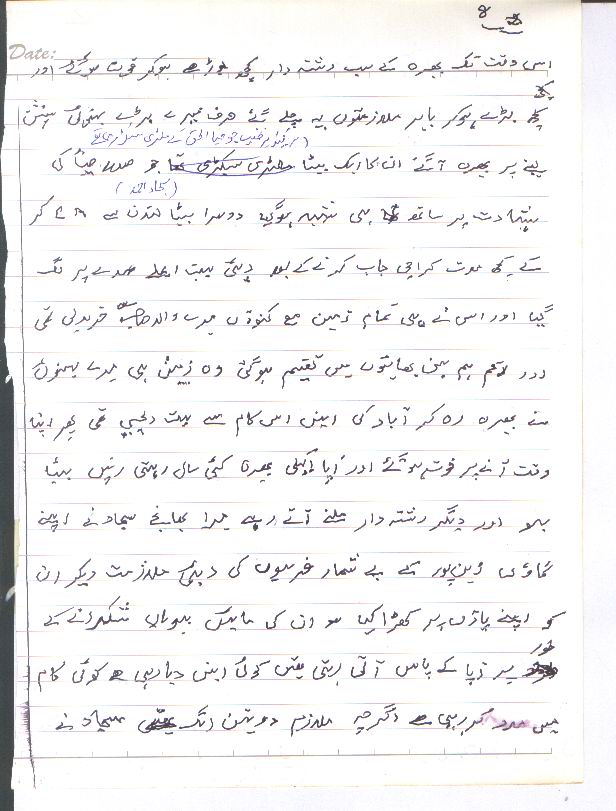 8
Date:
اس وقت تک بھیرہ کے سب رشتہ دار کچھ بوڑھے ہوکر فوت ہوگئے اور
کچھ
کچھ بڑے ہوکر باہر ملازمتوں پہ چلے گئے صرف میرے بڑے بہنوئی پنشن
(بریگیڈیر جو ضیا الحق کے ملٹری سیکرٹری تھے
لینے پر بھیرہ آگئے ان کا ایک بیٹا ملٹری سیکرٹری تھا جو صدر ضیا کی
(سجاد احمد)
شہادت پر ساتھ ہی شہید ہوگیا دوسرا بیٹا لندن سے کر
کے کچھ مدت کراچی جاب کرنے کے بعد دبئی بہت اعلے عہدے پر لگ
گیا اور اس نے ہی تمام زمین مع کنوؤں میرے والد صاحب خریدلی تھی
اور رقم ہم بہن بھائیوں میں تقسیم ہوگئی وہ زمین ہی میرے بہنوئی
نے بھیرہ رہ کر آباد کی انہیں اس کام سے بہت دلچسپی تھی پھر اپنا
وقت آنے پر فوت ہوگئے اور آپا اکیلی بھیرہ کئی سال رہتی رہیں بیٹا
بہلا اور دیگر رشتہ دار ملنے آتے رہے میرا بھانجے سجاد نے اپنے
گاؤں کے بے شمار غریبوں کی دبئی ملازمت دیکر ان
کو اپنے پاؤں پر کھڑا کیا سو ان کی مائیں بیویاں شکرانے کے
طور
پر آپا کے پاس آتی رہتی تھیں کوئی انہیں دبا رہی ہے کوئی کام
میں مدد کر رہی ہے اگرچہ ملازم دو تین الگ تھے سجاد نے